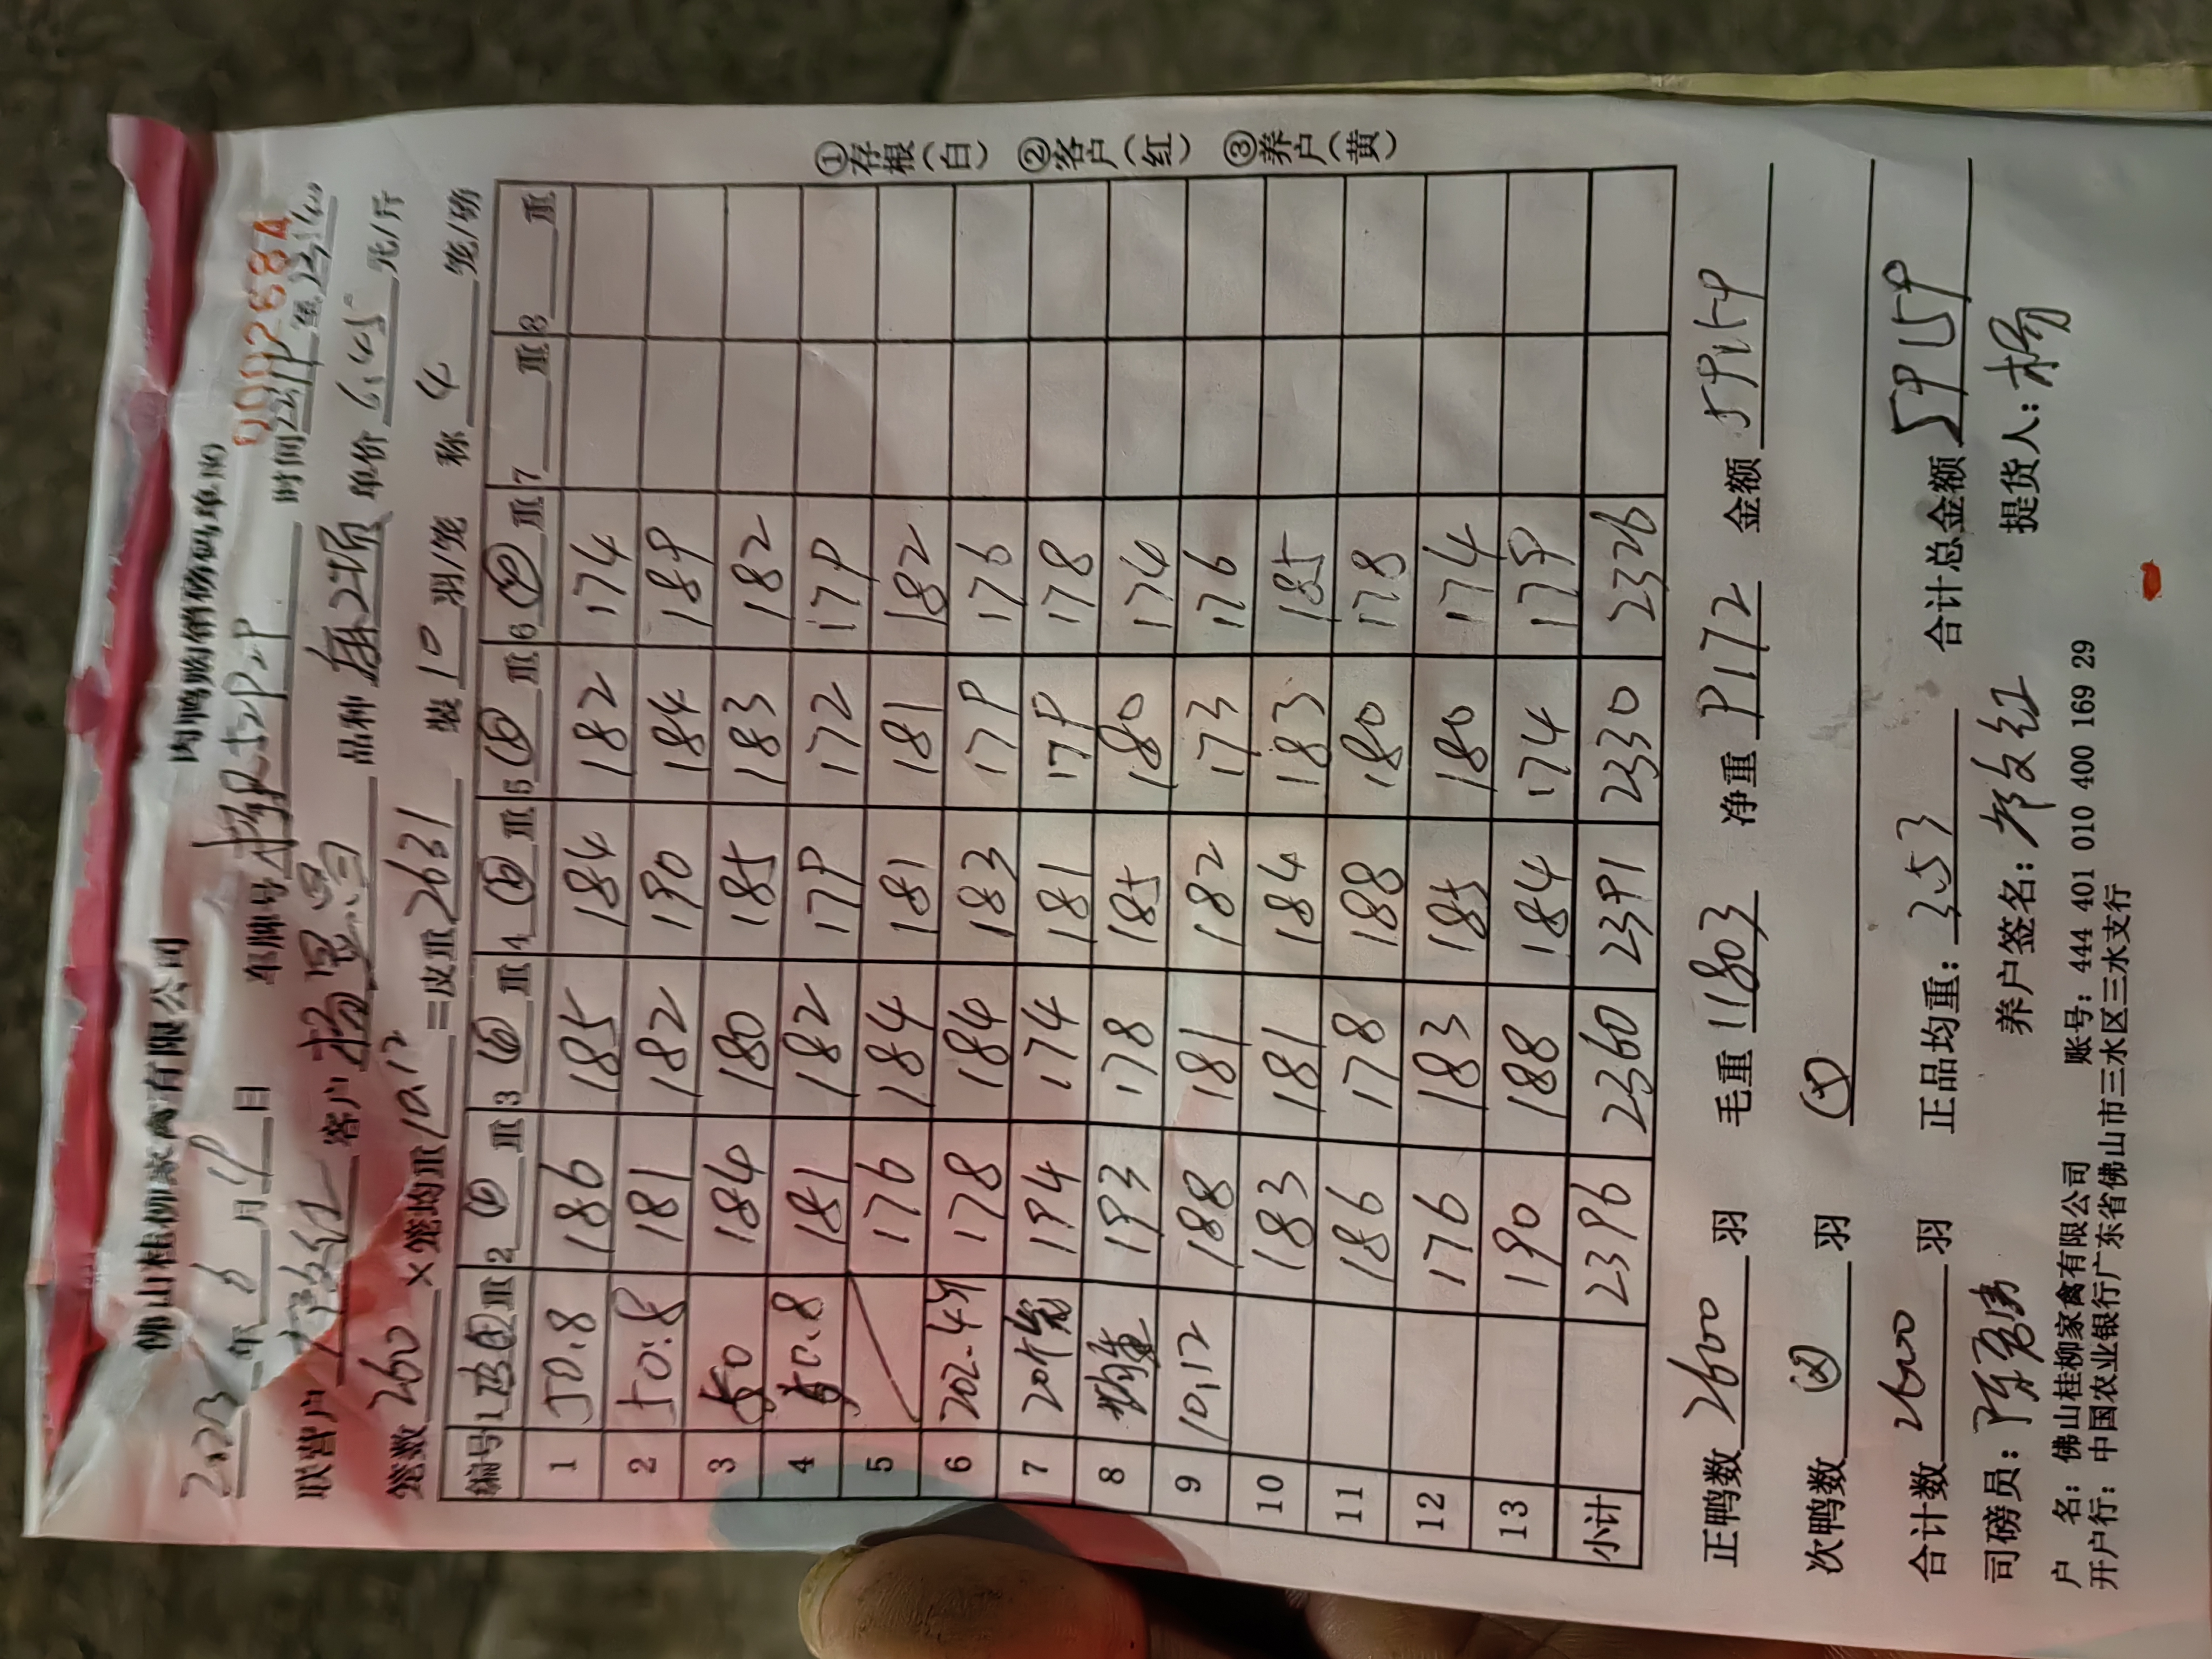 佛山桂柳家禽有限公司 肉鸭购销磅码单(B)
0002688A
2023年6月19日 车牌号 时间 至23:40
联营户 客户 品种 麻2项 单价6.45元/斤
笼数260×笼均重10.12=皮重2631 装10羽/笼 称4笼/磅
编号 1 重 2 重 3 重 4 重 5 重 6 重 7 重 8 重
1 50.8 186 185 184 182 174
2 50.8 181 182 190 184 189
3 50 184 180 185 183 182
4 50.8 181 182 179 172 179
5 176 184 181 181 182
6 202.4斤 178 184 183 179 176
7 20个笼 194 174 181 179 178
8 均重 193 178 185 180 174
9 10.12 188 181 182 173 176
10 183 181 184 183 185
11 186 178 188 180 178
12 176 183 185 180 174
13 190 188 184 174 179
小计 2396 2360 2391 2330 2326
正鸭数2600羽 毛重11803 净重9172 金额59159
次鸭数 羽
合计数2600羽 正品均重:3.53 合计总金额59159
司磅员: 养户签名: 提货人:杨
户 名:佛山桂柳家禽有限公司 账号:444 401 010 400 169 29
开户行:中国农业银行广东省佛山市三水区三水支行
①存根(白) ②客户(红) ③养户(黄)